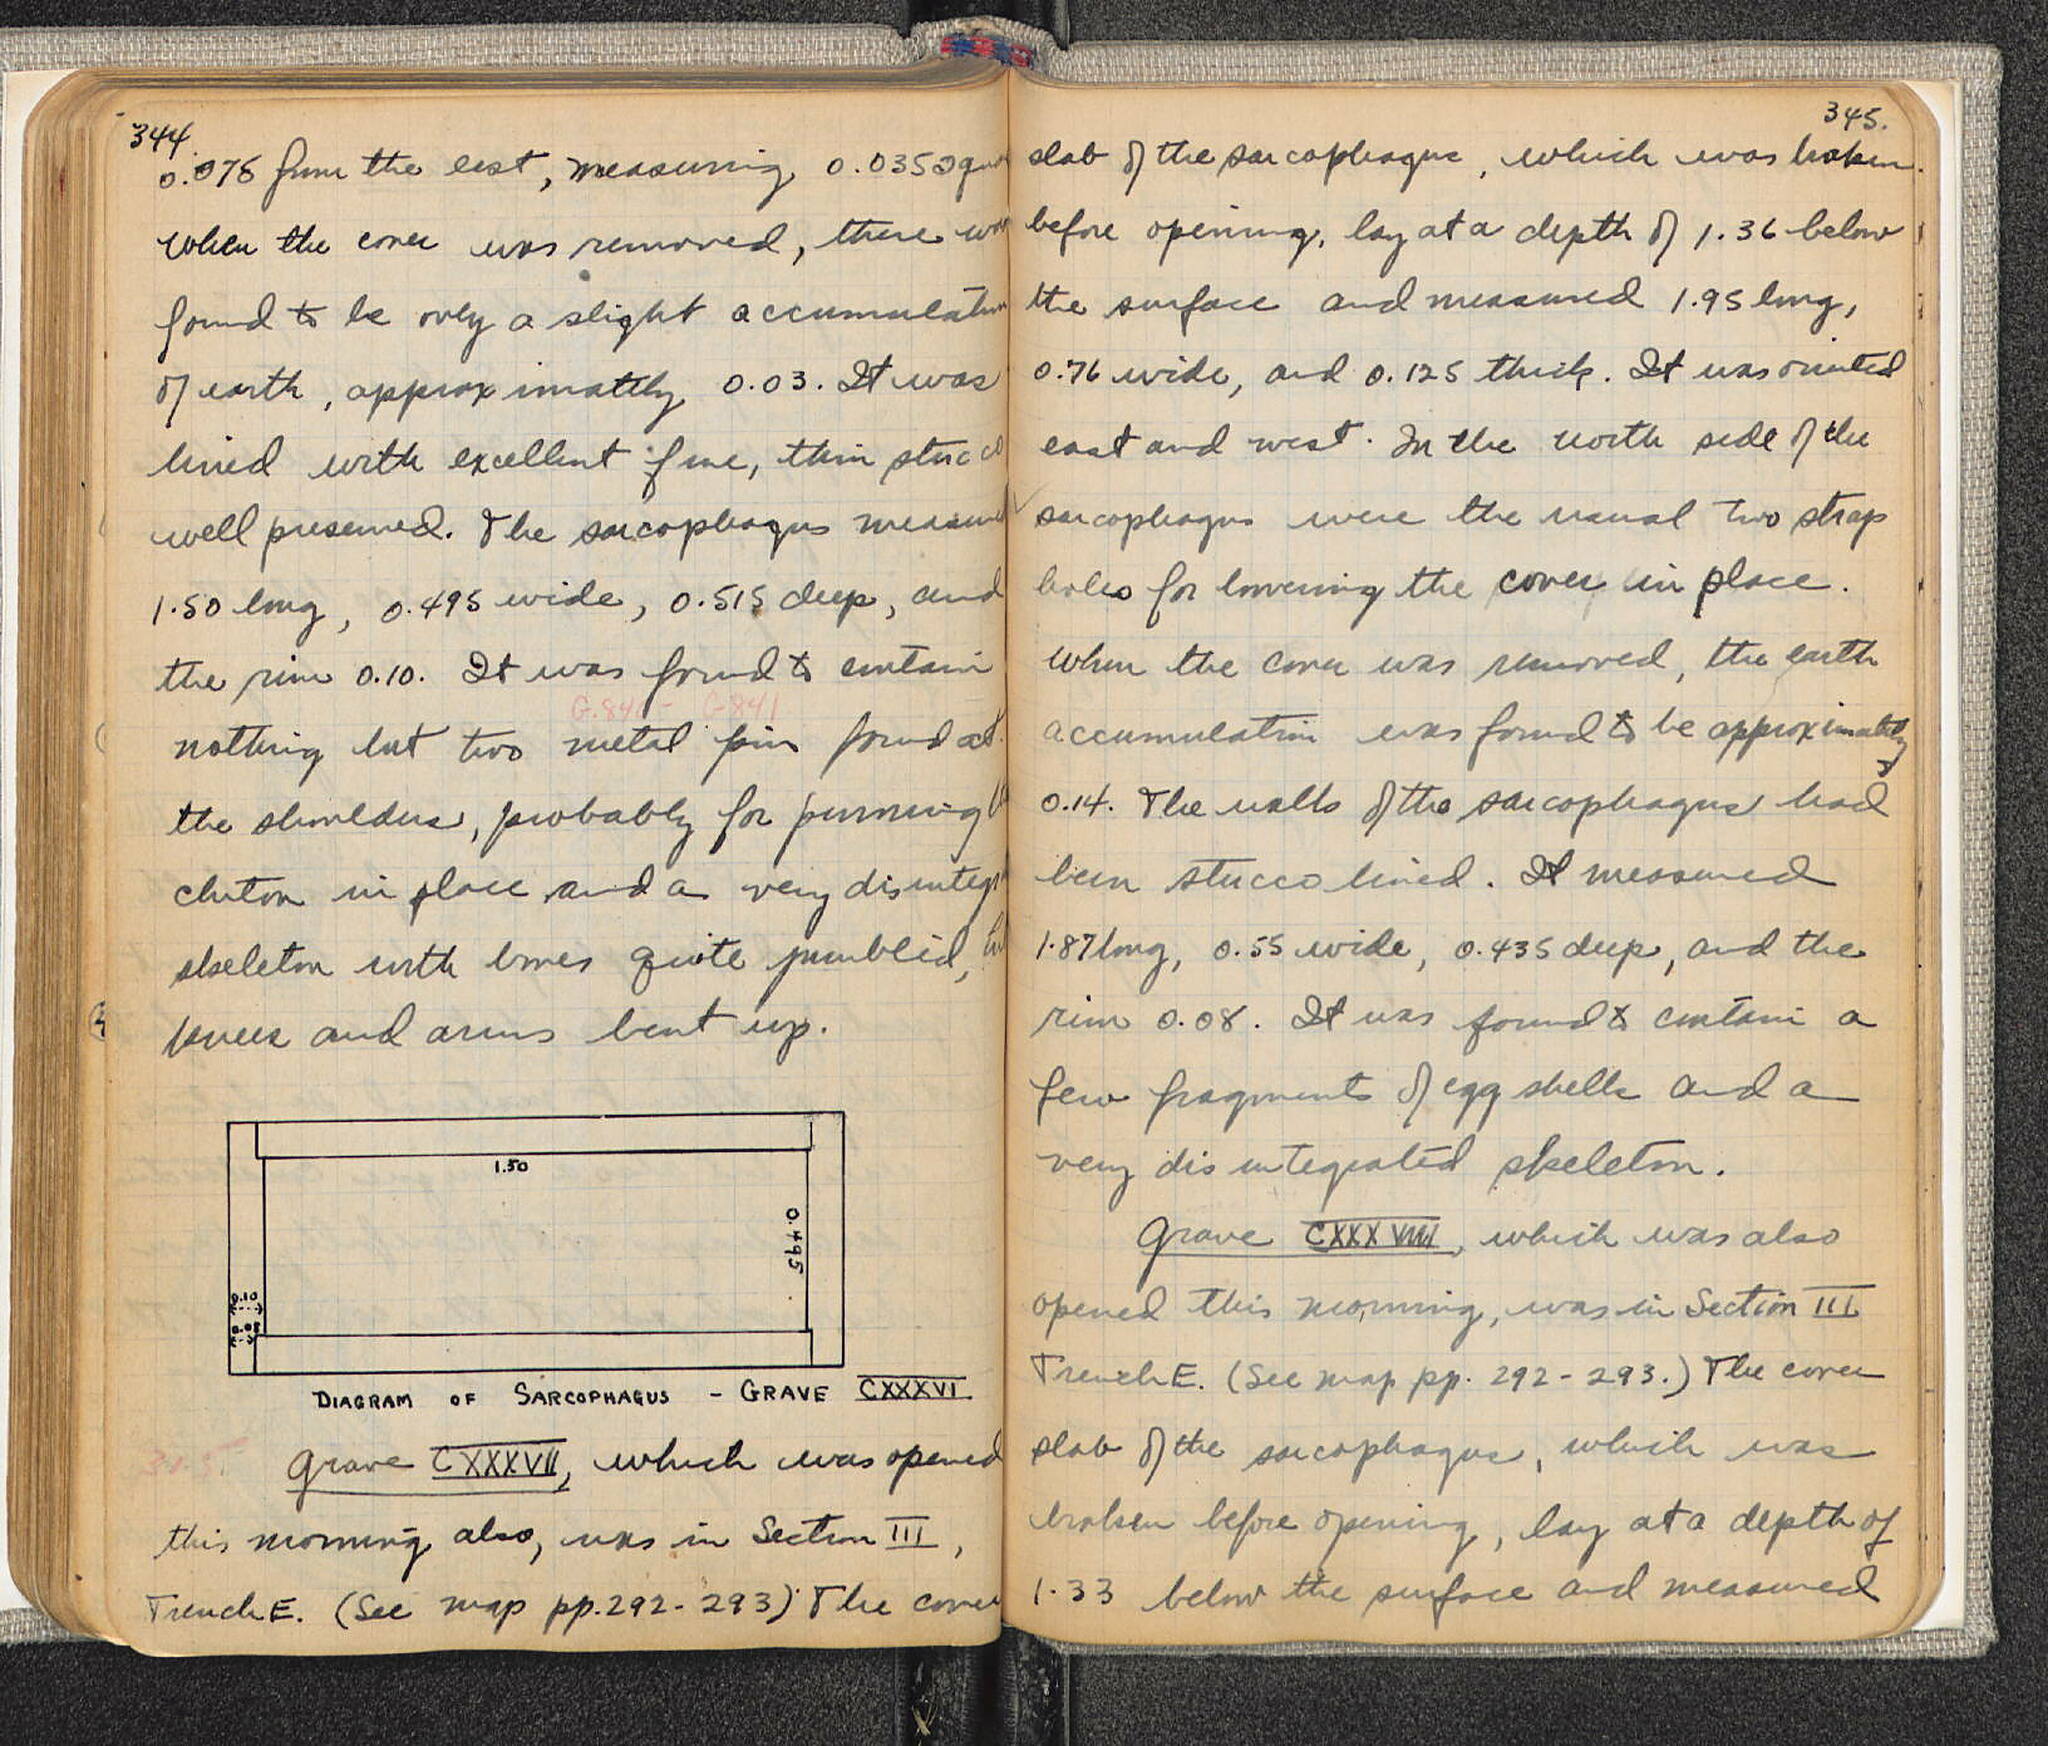 344.
0.078 from the east, measuring 0.035 square
when the cover was removed, there was
found to be only a slight accumulation
of earth, approximately 0.03. It was
lined with excellent fine, thin stucco
well preserved. The sarcophagus measured
1.50 long, 0.495 wide, 0.515 deep, and
the rim 0.10. It was found to contain
G.841
nothing but two metal pins found at
the shoulders, probably for pinning
chiton in place and a very disintegr
skeleton with bones quite jumbled,
knees and arms bent up.
1.50
0.495
0.10
0.08
DIAGRAM OF SARCOPHAGUS - GRAVE CXXXVI
Grave CXXXVII, which was opened
this morning also, was in Section III,
Trench E. (See map pp. 292-293) The cover
345.
slab of the sarcophagus, which was broken
before opening, lay at a depth of 1.36 below
the surface and measured 1.95 long,
0.76 wide, and 0.125 thick. It was oriented
east and west. In the north side of the
sarcophagus were the usual two strap
holes for lowering the cover in place.
When the cover was removed, the earth
accumulation was found to be approximately
0.14. The walls of the sarcophagus had
been stucco lined. It measured
1.87 long, 0.55 wide, 0.435 deep, and the
rim 0.08. It was found to contain a
few fragments of egg shells and a
very disintegrated skeleton.
Grave CXXXVIII, which was also
opened this morning, was in Section III
Trench E. (See map pp. 292-293.) The cover
slab of the sarcophagus, which was
broken before opening, lay at a depth of
1.33 below the surface and measured